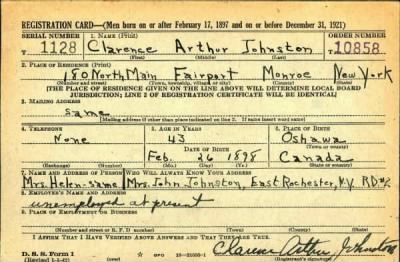 REGISTRATION CARD—(Men born on or after February 17, 1897 and on or before December 31, 1921)
SERIAL NUMBER 1. NAME (Print) ORDER NUMBER
T 1128 Clarence Arthur Johnston 10858
(First) (Middle) (Last)
2. PLACE OF RESIDENCE (Print)
180 North Main Fairport Monroe New York
(Number and street) (Town, township, village or city) (County) (State)
[THE PLACE OF RESIDENCE GIVEN ON THE LINE ABOVE WILL DETERMINE LOCAL BOARD
JURISDICTION; LINE 2 OF REGISTRATION CERTIFICATE WILL BE IDENTICAL]
3. MAILING ADDRESS
same
[Mailing address if other than place indicated on line 2. If same insert word same]
4. TELEPHONE 5. AGE IN YEARS 6. PLACE OF BIRTH
None 43 Oshawa
DATE OF BIRTH (Town or county)
Feb. 26 1898 Canada
(Exchange) (Number) (Mo.) (Day) (Yr.) (State or country)
7. NAME AND ADDRESS OF PERSON WHO WILL ALWAYS KNOW YOUR ADDRESS
Mrs. Helen - same Mrs. John Johnston, East Rochester, N.Y. RD#2
8. EMPLOYER'S NAME AND ADDRESS
unemployed at present
9. PLACE OF EMPLOYMENT OR BUSINESS
(Number and street or R. F. D. number) (Town) (County) (State)
I AFFIRM THAT I HAVE VERIFIED ABOVE ANSWERS AND THAT THEY ARE TRUE.
D. S. S. Form 1 GPO Clarence Arthur Johnston
(Revised 1-1-42)